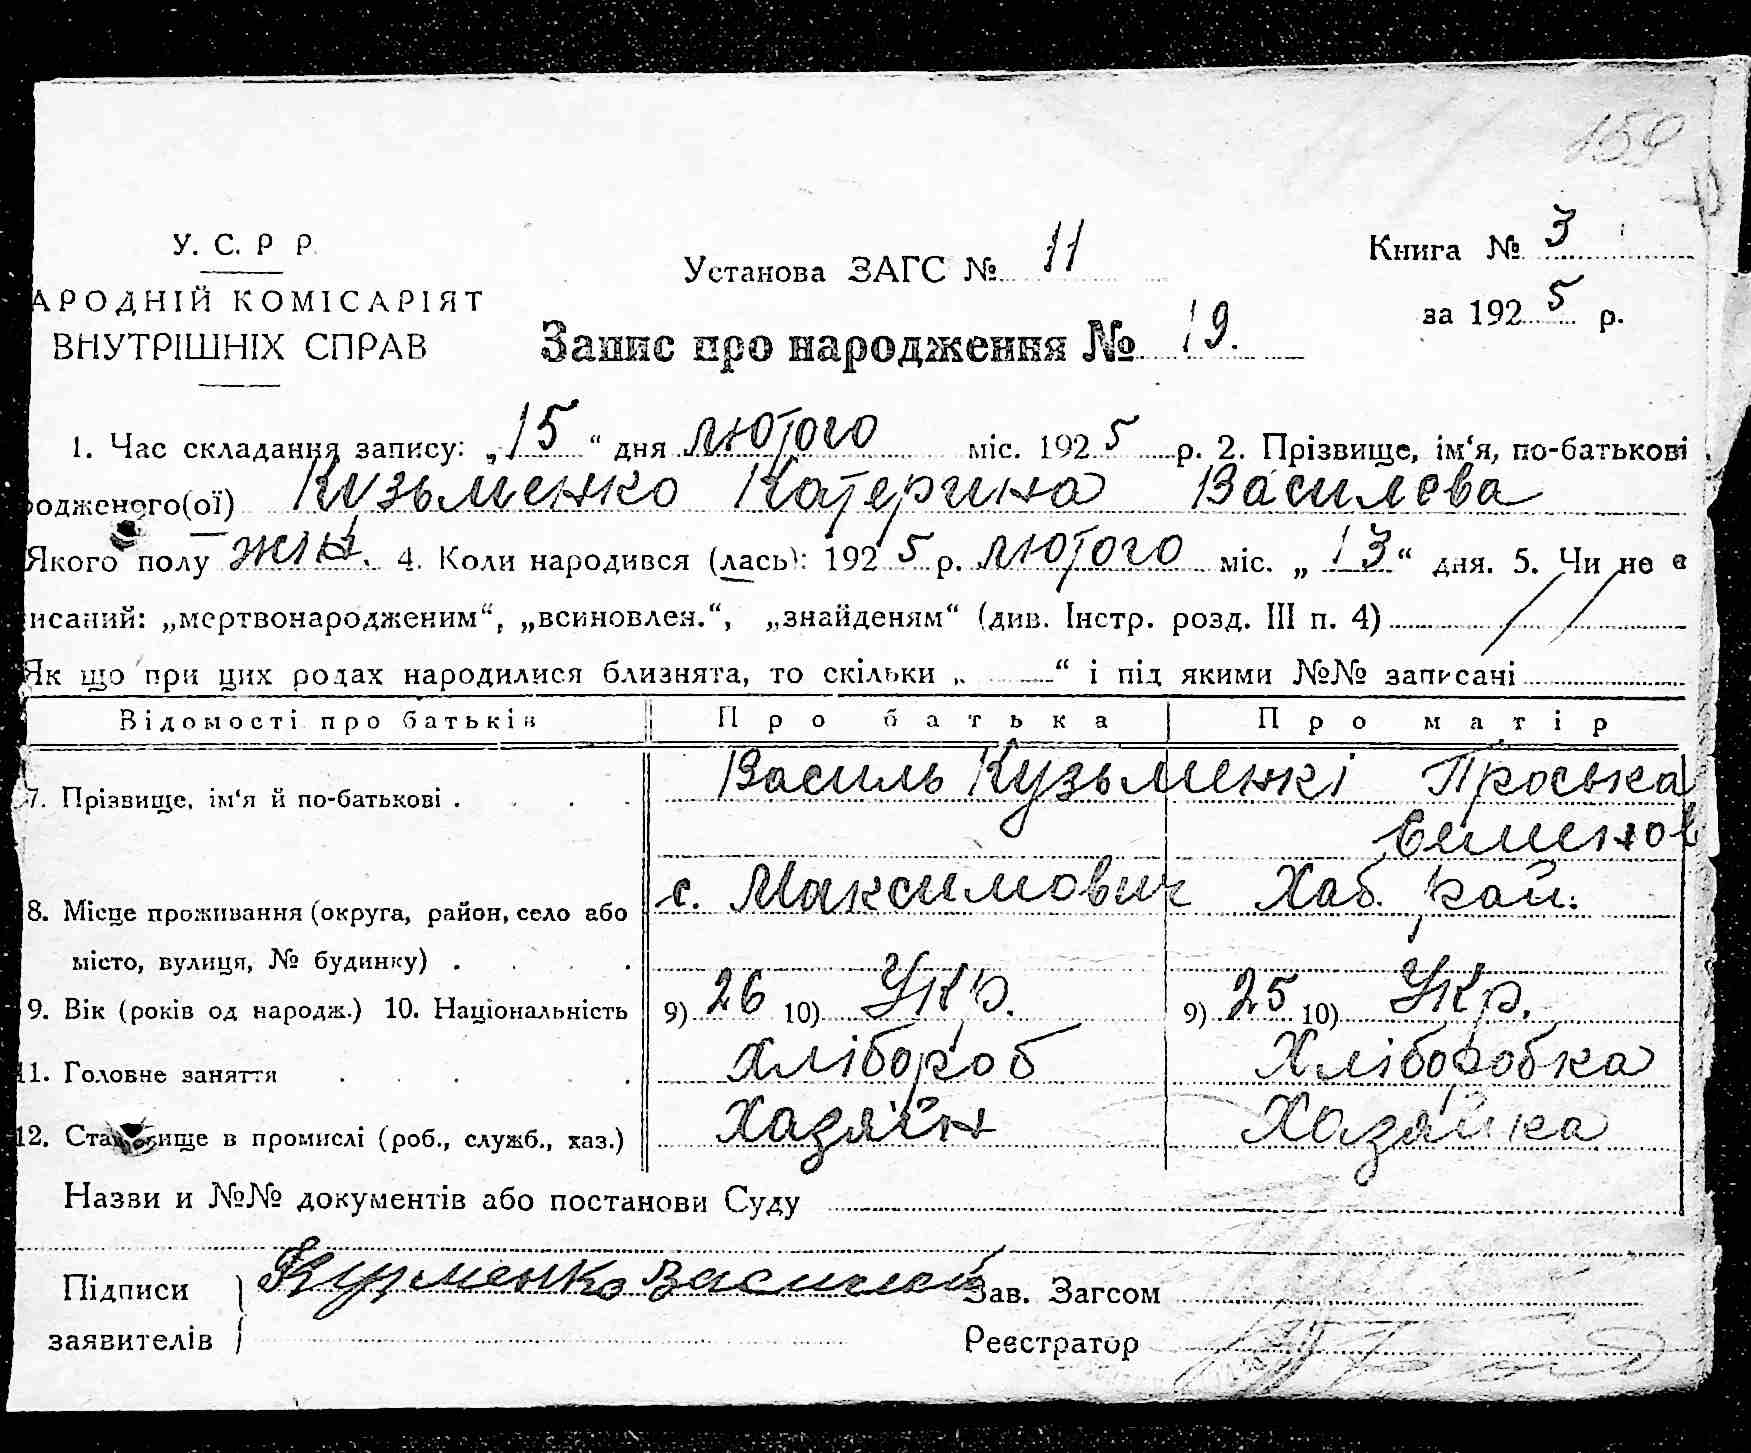 159
У. С. Р Р.
Установа ЗАГС № 11
Книга № 3
АРОДНІЙ КОМІСАРІЯТ
за 1925 р.
ВНУТРІШНІХ СПРАВ
Запис про народження № 19.
1. Час складання запису: „15“ дня лютого міс. 1925 р. 2. Прізвище, ім‘я, по-батькові
родженого(ої) Кузьменко Катерина Василева
Якого полу жін. 4. Коли народився (лась): 1925 р. лютого міс. „13“ дня. 5. Чи не є
писаний: „мертвонародженим“, „всиновлен.“, „знайденям“ (див. Інстр. розд. III п. 4)
Як що при цих родах народилися близнята, то скільки „ “ і під якими №№ записані
Відомості про батьків Про батька Про матір
7. Прізвище, ім‘я й по-батькові . . . . Василь Кузьменкі Проська
Семенов
8. Місце проживання (округа, район, село або с. Максимович Хаб. рай.
місто, вулиця, № будинку) . . . .
9. Вік (років од народж.) 10. Національність 9) 26 10) Укр. 9) 25 10) Укр.
11. Головне заняття . . . . Хлібороб Хліборобка
12. Становище в промислі (роб., служб., хаз.) Хазяїн Хазяйка
Назви и №№ документів або постанови Суду
Підписи Кузменко Василий Зав. Загсом
заявителів Реєстратор